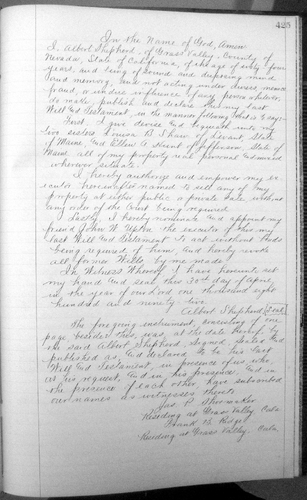 425
In the Name of God, Amen
I, Albert Shepherd, of Grass Valley, County of
Nevada, State of California, of the age of sixty four
years, and being of sound and disposing mind
and memory, and not acting under duress, menace
fraud, or undue influence of any person whatever,
do make publish and declare this my last
Will and Testament, in the manner following, that is to say:-
First, I give devise and bequeath unto my
two sisters Louisa B. Shaw, of State
of Maine and Ellen A. of Jefferson, State of
Maine, all of my property real personal and mixed
wherever situated.
I hereby authorize and empower my ex-
ecutor hereinafter named to sell any of my
property at either public or private sale without
any order of the Court being required.
Lastly, I hereby nominate and appoint my
friend John W. Upton the executor of this my
last Will and Testament to act without bonds
being required of him; and hereby revoke
all former Wills by me made.
In Witness Whereof I have hereunto set
my hand and seal this 30th day of April
in the year of our Lord one thousand eight
hundred and ninety five.
Albert Shepherd (Seal)
The foregoing instrument, consisting of one
page, besides this, was, at the date hereof, by
the said Albert Shepherd signed, sealed and
published as, and declared to be his last
Will and Testament, in presence of us who,
at his request, and in his presence, and in
the presence of each other, have subscribed
our names as witnesses thereto
Jas. P. Shoemaker
Residing at Grass Valley Cala.
Frank B. Ridge
Residing at Grass Valley, Cala.